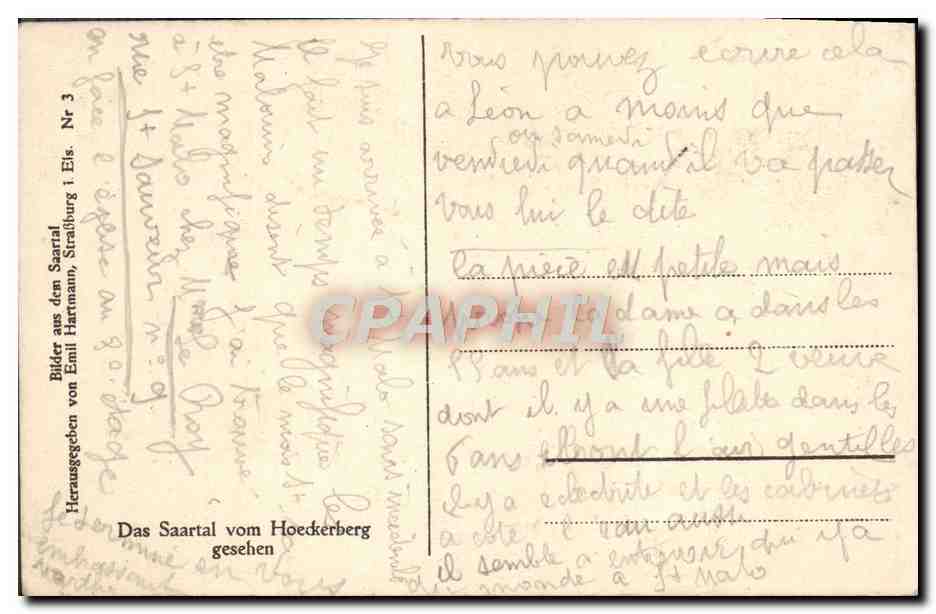 Bilder aus dem Saartal
Herausgegeben von Emil Hartmann, Straßburg i. Els. Nr 3
Das Saartal vom Hoeckerberg
gesehen
je suis arrivée à St Malo sans incident
il fait un temps magnifique les
Malouins disent que le mois
être magnifique j'ai trouvé
à St Malo chez Mme Roy
rue St Sauveur n° 9
en face l'église au 2e étage
Je termine en vous
embrassant
vous pouvez écrire cela
a Léon a moins que
ou samedi
vendredi quand il va passer
vous lui le dite
la pièce est petite mais
la dame a dans les
ans et la fille veuve
dont il y a une dans les
6 ans l'air gentilles
il y a electricité et les cabinets
a coté l'eau aussi
il semble a y a
monde a St Malo
CPAPHIL